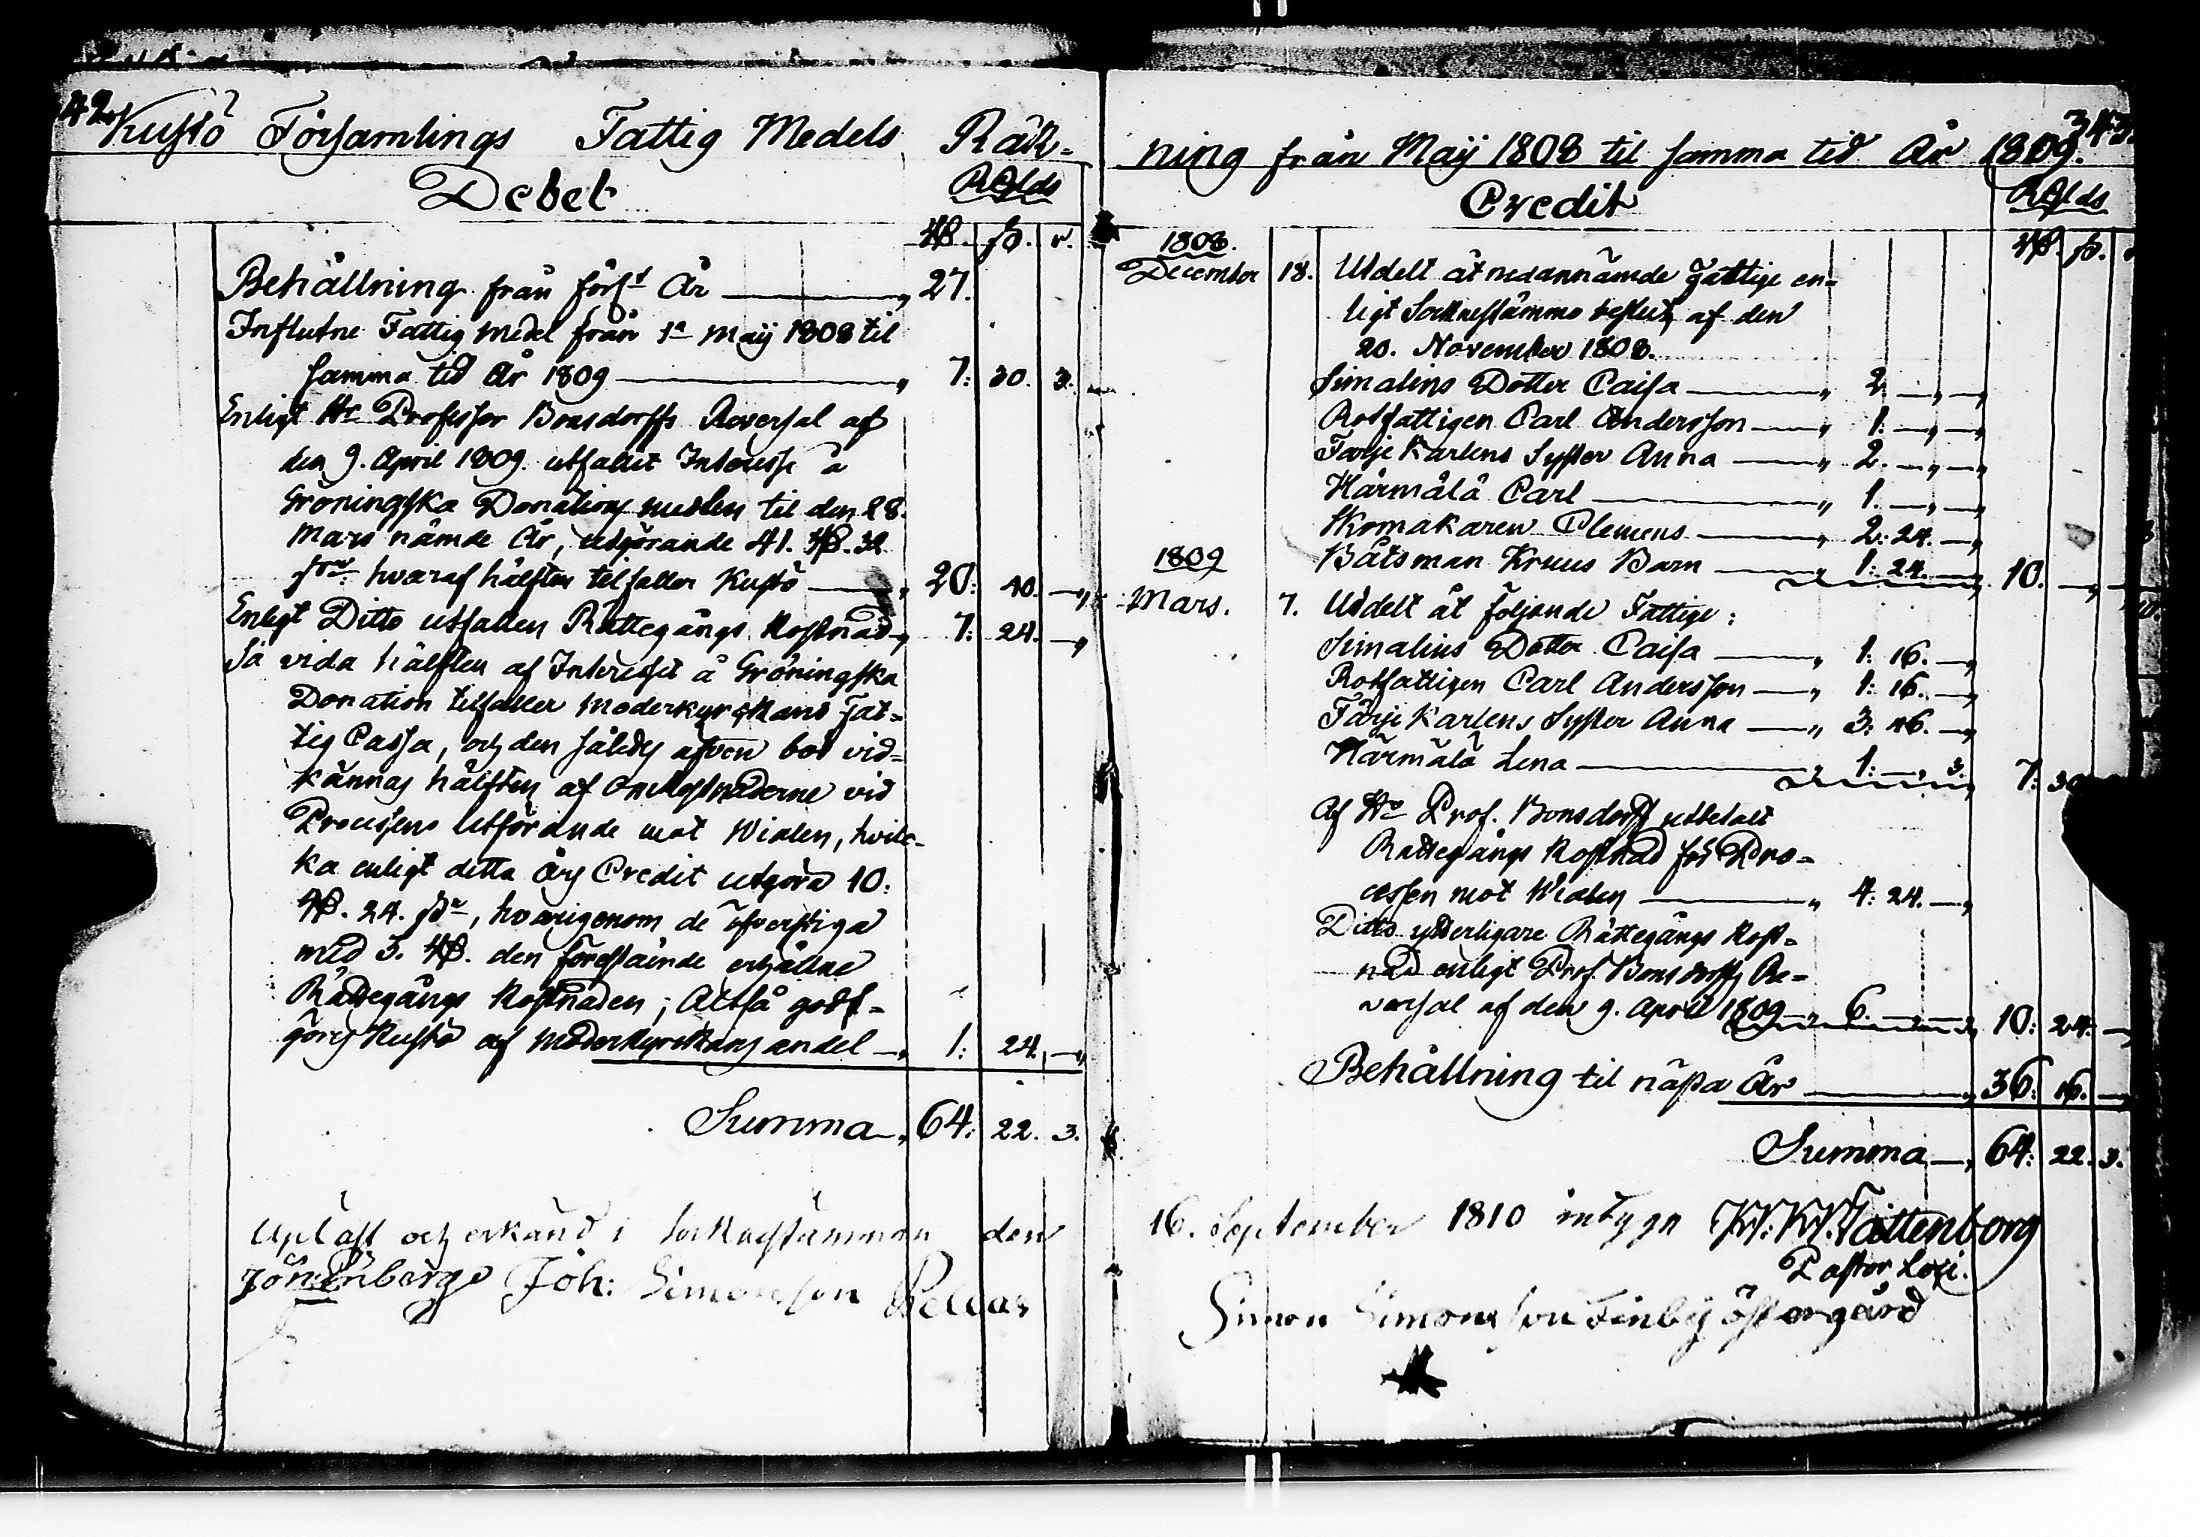 42.
Kustö Församlings Fattig Medels Räk-
Debet
RGlds
Rd. sk. r.
Behållning från förfl. År — 27.
Influtne Fattig medel från 1a Maÿ 1808 til
samma tid År 1809 — 7: 30. 3.
Enligt Hr Professor Bonsdorffs Reversal af
den 9. April 1809. utfallit Interesse å
Gröningska Donations medlen til den 28.
Mars nämde År, utgörande 41. Rd. 32
sk. hvaraf hälften tilfaller Kustö — 20: 40. —
Enligt Ditto utfallen Rättegångs Kostnad — 7: 24. —
Så vida hälften af Interesset å Gröningska
Donation tilfaller moderkyrckans Fat-
tig Cassa, och den således äfven bör vid-
kännas hälften af Omkostnaderne vid
Processens utförande mot Wialen, hvil-
ka enligt detta Års Credit utgöra 10.
Rd. 24. sk., hvarigenom de öfverstiga
med 3. Rd. den föreståinde erhållne
Rättegångs Kostnaden; Altså godt-
göres Kustö af Moderkyrckans andel — 1: 24. —
Summa — 64: 22. 3.
343.
ning från Maÿ 1808 til samma tid År 1809.
Credit
RGlds
Rd. sk.
1808.
December 18. Utdelt åt nedannämde Fattige en-
ligt Socknestämmo beslut af den
20. November 1808.
Simalins Dotter Caisa — 2. — —
Rotfattigen Carl Andersson — 1: — —
Färje Karlens Syster Anna — 2. — —
Härmälä Carl — 1. — —
Skomakaren Clemens — 2: 24. —
1809
Båtsman Kruus Barn — 1: 24. — 10. — —
Mars. 7. Utdelt åt följande Fattige:
Simalins Dotter Caisa — 1: 16. —
Rotfattigen Carl Andersson — 1: 16. —
Färje Karlens Syster Anna — 3: 46. —
Härmälä Lena — 1: — 3. 7: 30
Af Hr Prof. Bonsdorff utbetalt
Rättegångs Kostnad för Pro-
cessen mot Wialen — 4: 24. —
Ditto ytterligare Rättegångs Kost-
nad enligt Prof. Bonsdorffs Re-
versal af den 9. April 1809 — 6. — — 10: 24. —
Behållning til nästa År — 36: 16. —
Summa — 64: 22. 3.
Upläst och erkänd i Socknestämman den
16. September 1810 intyga
Tattenborg
Pastor Loci.
Joh: Simonsson
Simon Simonsson Finby östergård